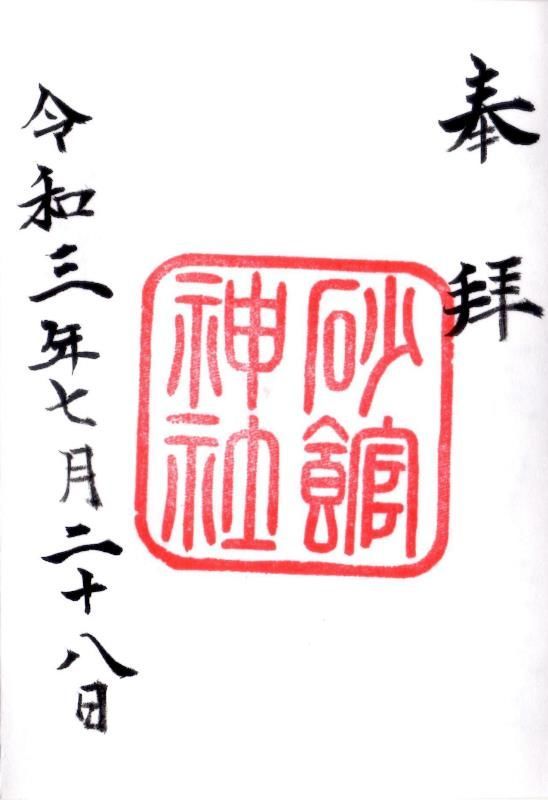 奉拝
砂館
神社
令和三年七月二十八日